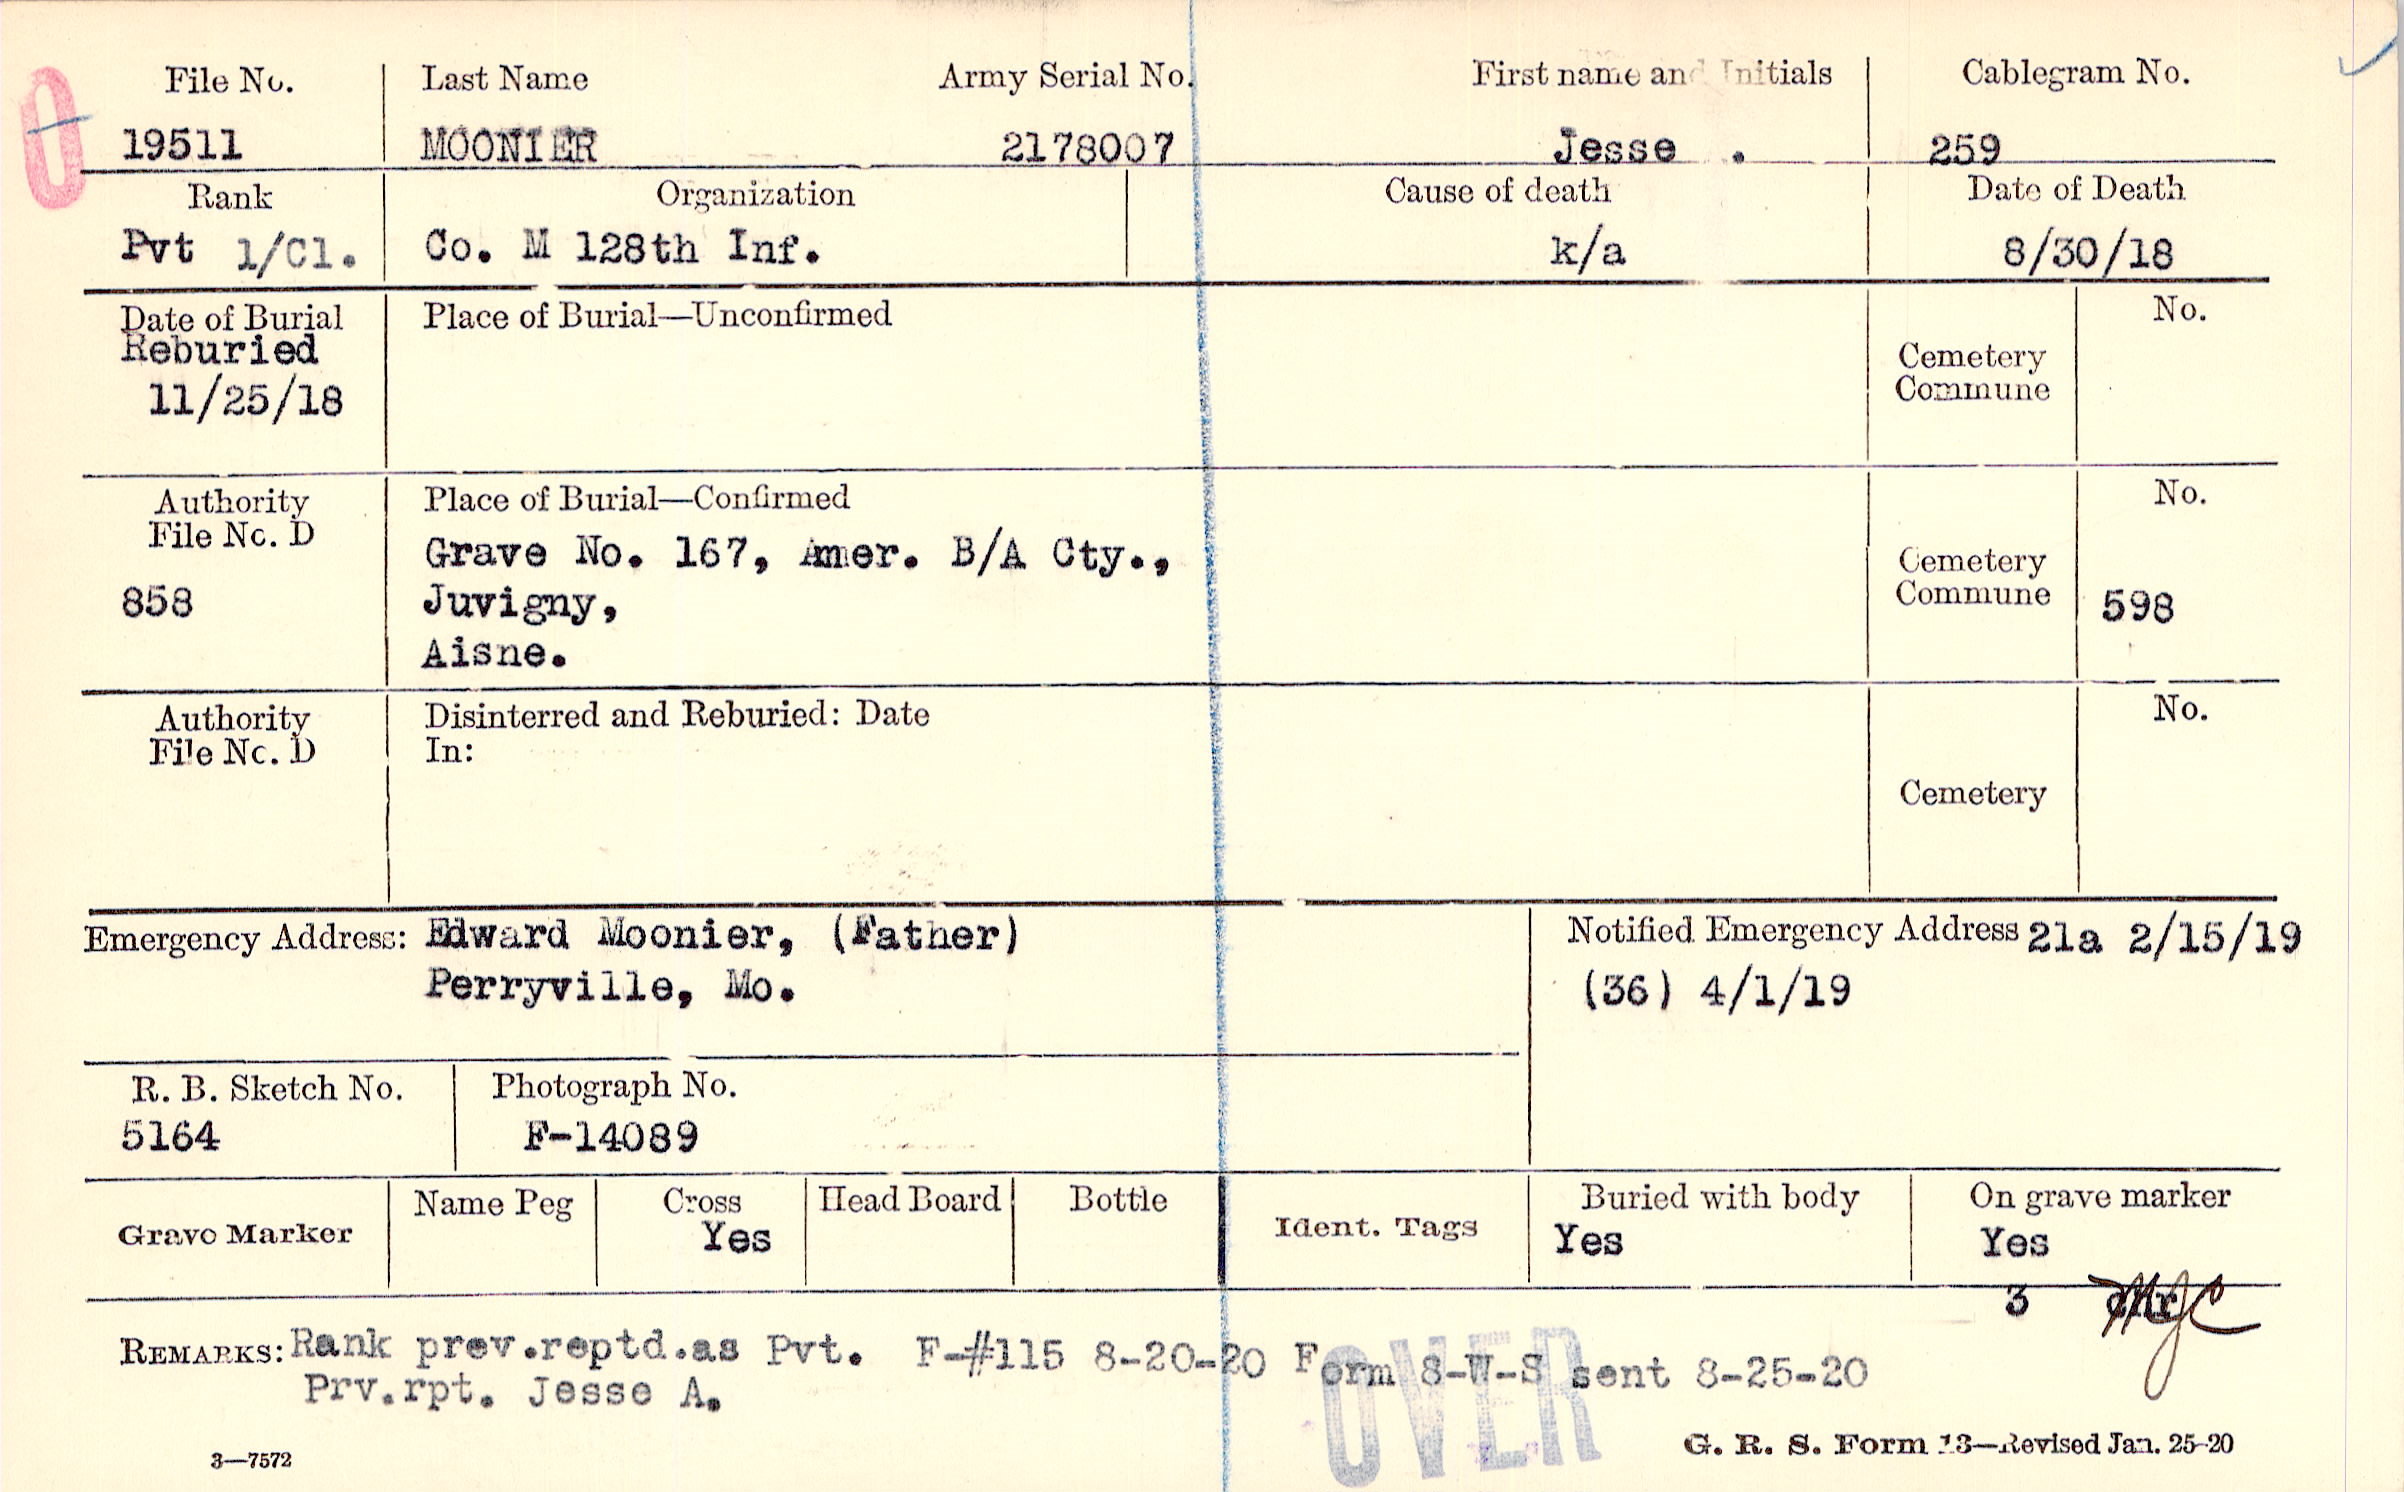 File No. Last Name Army Serial No. First name and Initials Cablegram No.
19511 MOONIER 2178007 Jesse . 259
Rank Organization Cause of death Date of Death
Pvt 1/Cl. Co. M 128th Inf. k/a 8/30/18
Date of Burial Place of Burial—Unconfirmed No.
Reburied
11/25/18
Cemetery
Commune
Authority Place of Burial—Confirmed No.
File No. D
858
Grave No. 167, Amer. B/A Cty.,
Juvigny,
Aisne.
Cemetery
Commune 598
Authority Disinterred and Reburied: Date No.
File No. D In:
Cemetery
Emergency Address: Edward Moonier, (Father)
Perryville, Mo.
Notified Emergency Address 21a 2/15/19
(36) 4/1/19
R. B. Sketch No. Photograph No.
5164 F-14089
Grave Marker Name Peg Cross Head Board Bottle Ident. Tags Buried with body On grave marker
Yes Yes Yes
3
REMARKS: Rank prev.reptd.as Pvt. F-#115 8-20-20 Form 8-W-S sent 8-25-20
Prv.rpt. Jesse A.
OVER
3—7572 G. R. S. Form 13—Revised Jan. 25-20